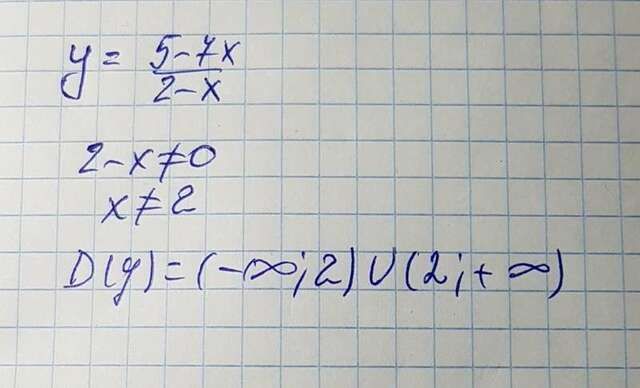 y = 5-7x / 2-x
2-x≠0
x≠2
D(y)=(-∞;2)∪(2;+∞)